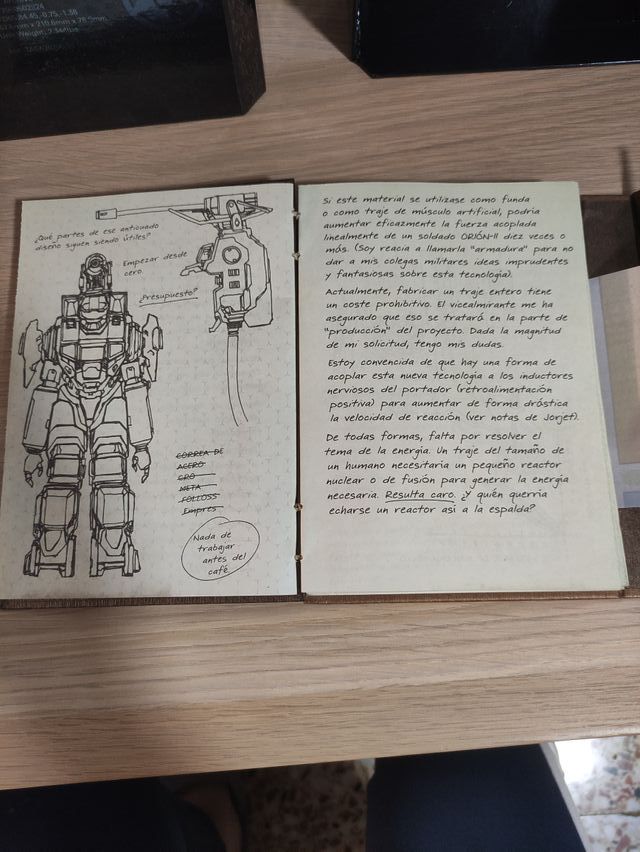 ¿Qué partes de ese anticuado
diseño siguen siendo útiles?
Empezar desde
cero.
¿Presupuesto?
CORREA DE
ACERO
CRO
NETA
FOLLOSS
Empres
Nada de
trabajar
antes del
café
Si este material se utilizase como funda
o como traje de músculo artificial, podría
aumentar eficazmente la fuerza acoplada
linealmente de un soldado ORIÓN-II diez veces o
más. (Soy reacia a llamarla "armadura" para no
dar a mis colegas militares ideas imprudentes
y fantasiosas sobre esta tecnología).
Actualmente, fabricar un traje entero tiene
un coste prohibitivo. El vicealmirante me ha
asegurado que eso se tratará en la parte de
"producción" del proyecto. Dada la magnitud
de mi solicitud, tengo mis dudas.
Estoy convencida de que hay una forma de
acoplar esta nueva tecnología a los inductores
nerviosos del portador (retroalimentación
positiva) para aumentar de forma drástica
la velocidad de reacción (ver notas de Jorjet).
De todas formas, falta por resolver el
tema de la energía. Un traje del tamaño de
un humano necesitaría un pequeño reactor
nuclear o de fusión para generar la energía
necesaria. Resulta caro. ¿Y quién querría
echarse un reactor así a la espalda?